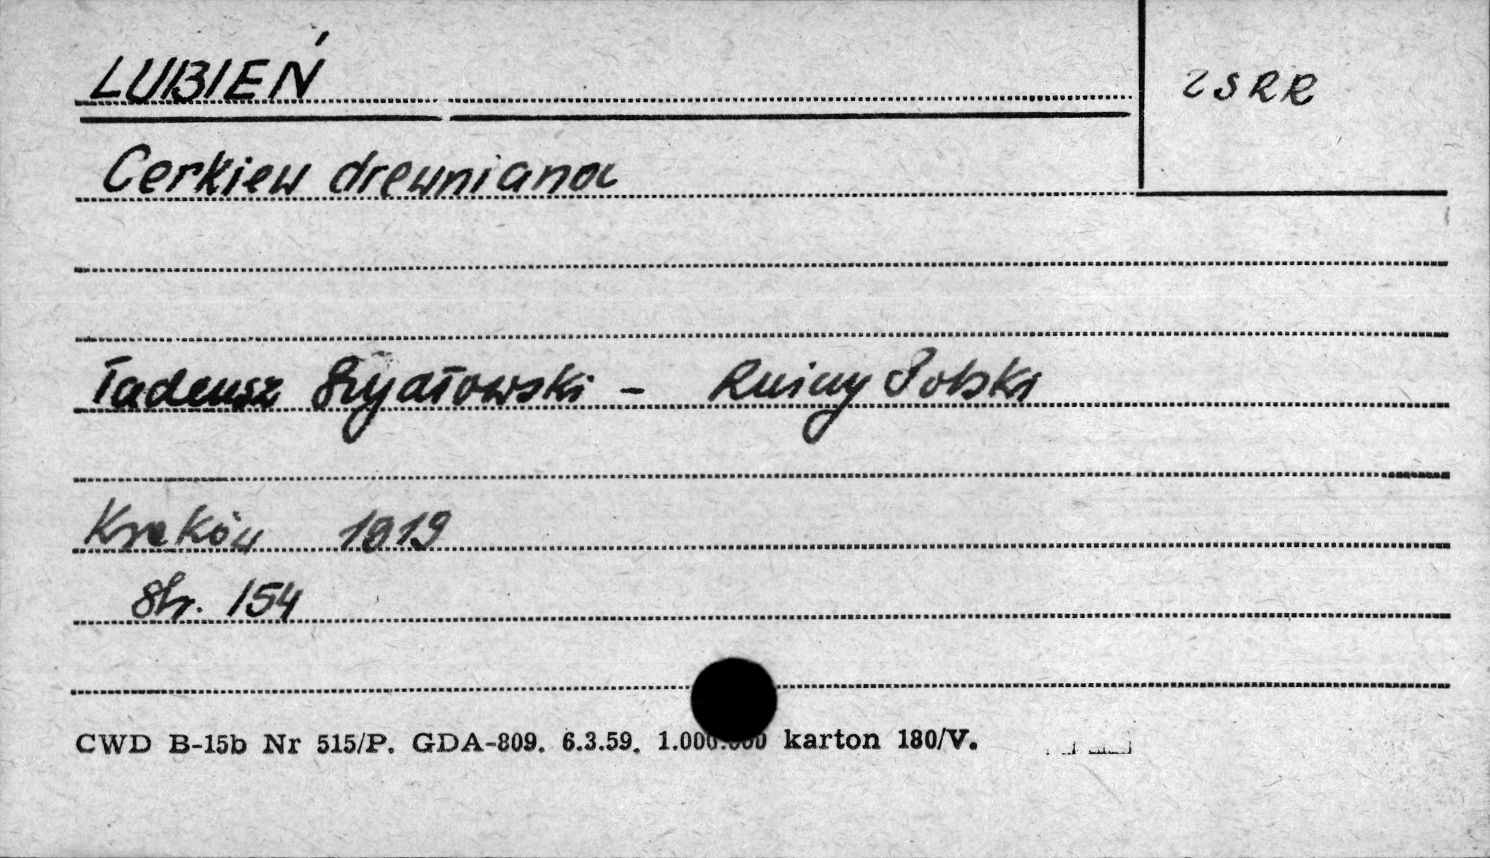 LUBIEŃ
ZSRR
Cerkiew drewniana
Tadeusz Szydłowski - Ruiny Polski
Kraków 1919
Str. 154
CWD B-15b Nr 515/P. GDA-809. 6.3.59. 1.000.000 karton 180/V.